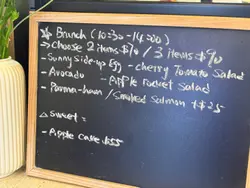 * Brunch (10:30-14:00)
→ Choose 2 items $70 / 3 items $90
- Sunny side-up Egg - Cherry Tomato Salad
- Avocado - Apple Rocket Salad
- Parma-ham / Smoked Salmon + $25
△ Sweet =
- Apple Cake $55